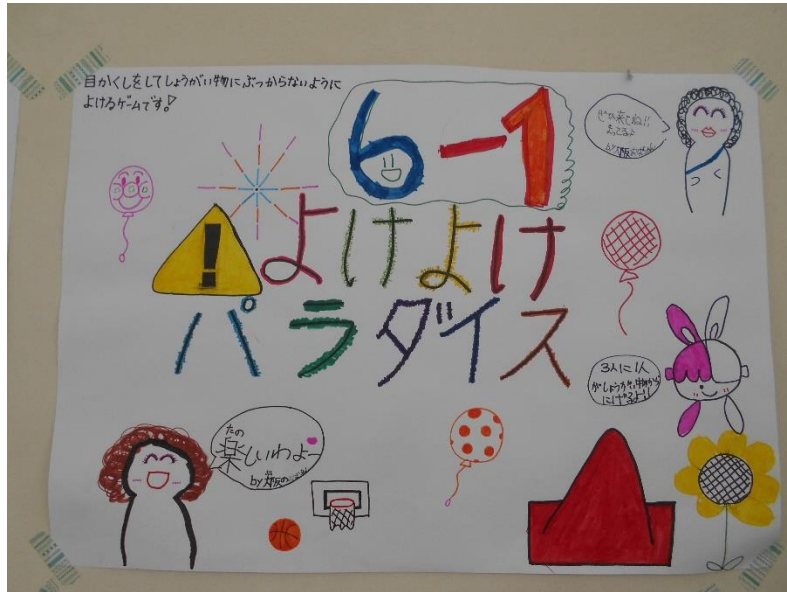 目かくしをしてしょうがい物にぶつからないように
よけるゲームです!
6-1
ぜひ来てね!!
まってるよ
by大阪のおばさん
!よけよけ
パラダイス
3人に1人
がしょうがい物から
にげるよ!!
たの
楽しいわよー
by大阪のおばさん